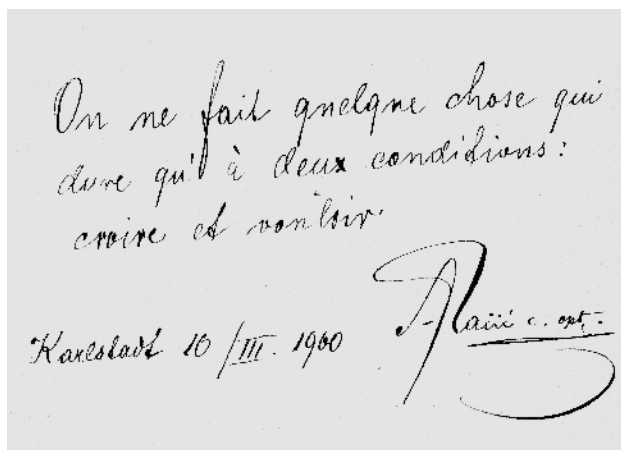 On ne fait quelque chose qui
dure qu'à deux conditions:
croire et vouloir.
Karlstadt 10/III. 1900